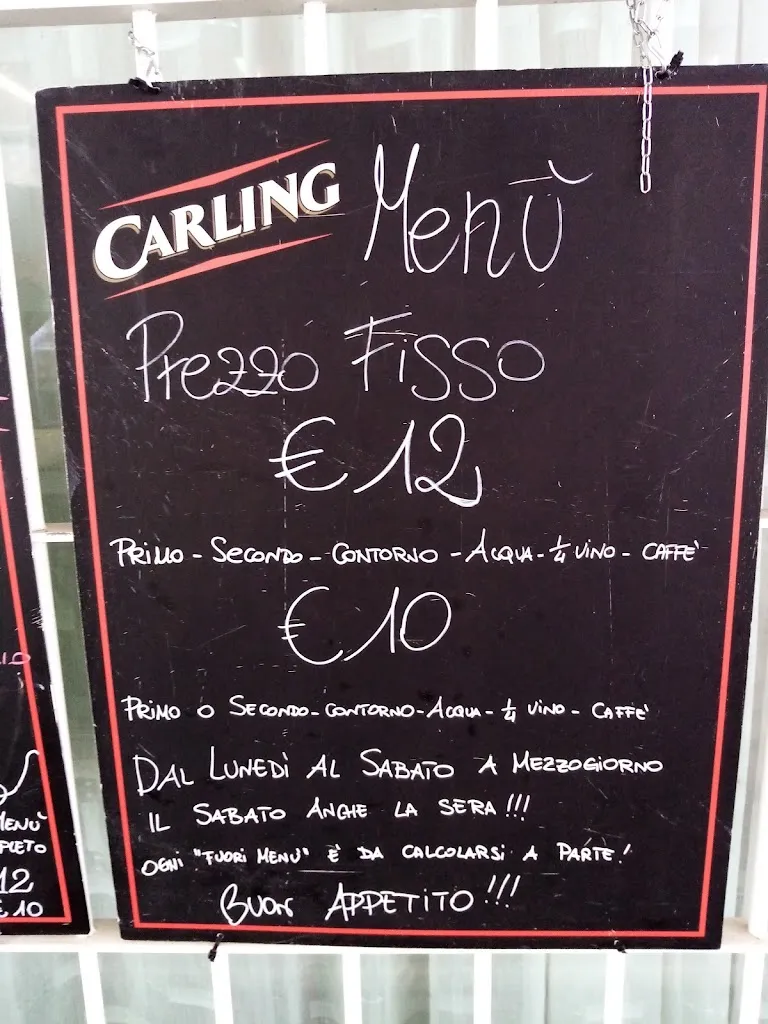 CARLING Menù
Prezzo Fisso
€ 12
PRIMO - SECONDO - CONTORNO - ACQUA - 1/4 VINO - CAFFE'
€ 10
PRIMO O SECONDO - CONTORNO - ACQUA - 1/4 VINO - CAFFE'
DAL LUNEDÌ AL SABATO A MEZZOGIORNO
IL SABATO ANCHE LA SERA!!!
OGNI "FUORI MENU" È DA CALCOLARSI A PARTE!
BUON APPETITO!!!
MENÙ
12
€ 10